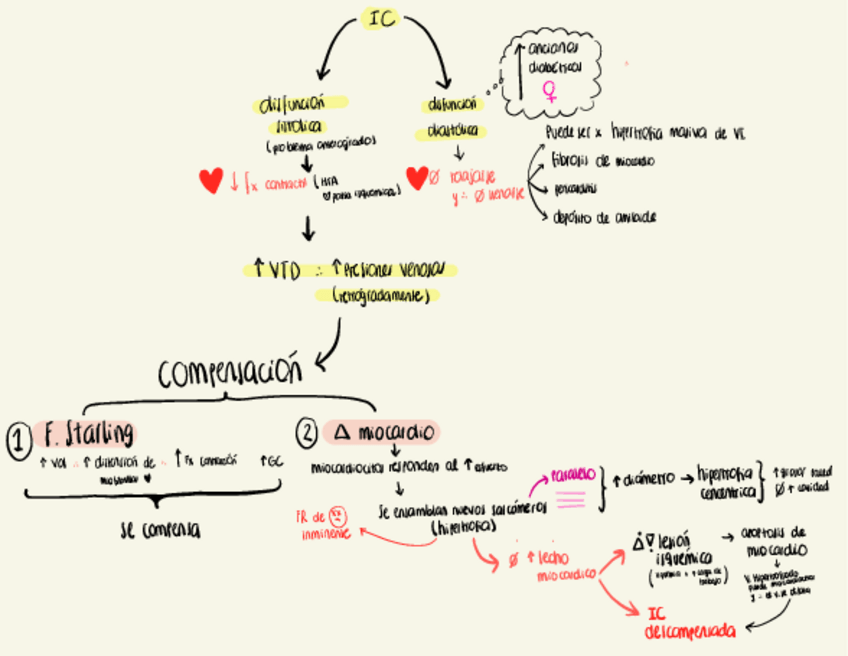 IC
disfunción
sistólica
(problema anterogrado)
↓ Fx contractil (HTA
isquemica)
↑ VTD ∴ ↑ Presiones venosas
(retrógradamente)
disfunción
diastólica
Ø relajarse
y ∴ Ø llenarse
↑ ancianos
diabéticos
♀
Puede ser x hipertrofia masiva de VI
Fibrosis de miocardio
pericarditis
depósito de amiloide
Compensación
1 F. Starling
↑ Vol ∴ ↑ distensión de ∴ ↑ Fx contracción ↑ GC
se compensa
2 Δ miocardio
miocardiocitos responden al ↑ esfuerzo
Se ensamblan nuevos sarcómeros
(hipertrofia)
FR de
inminente
Paralelo
↑ diámetro → hipertrofia
concentrica
↑ grosor pared
Ø ↑ cavidad
Ø ↑ lecho
miocardico
lesión
isquémica
trabajo)
→ apoptosis de
miocardio
IC
descompensada